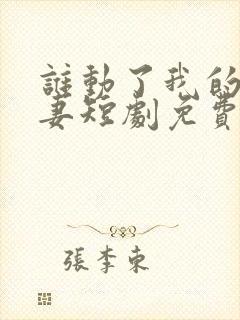 誰動了我的
妻短劇免費
張李東